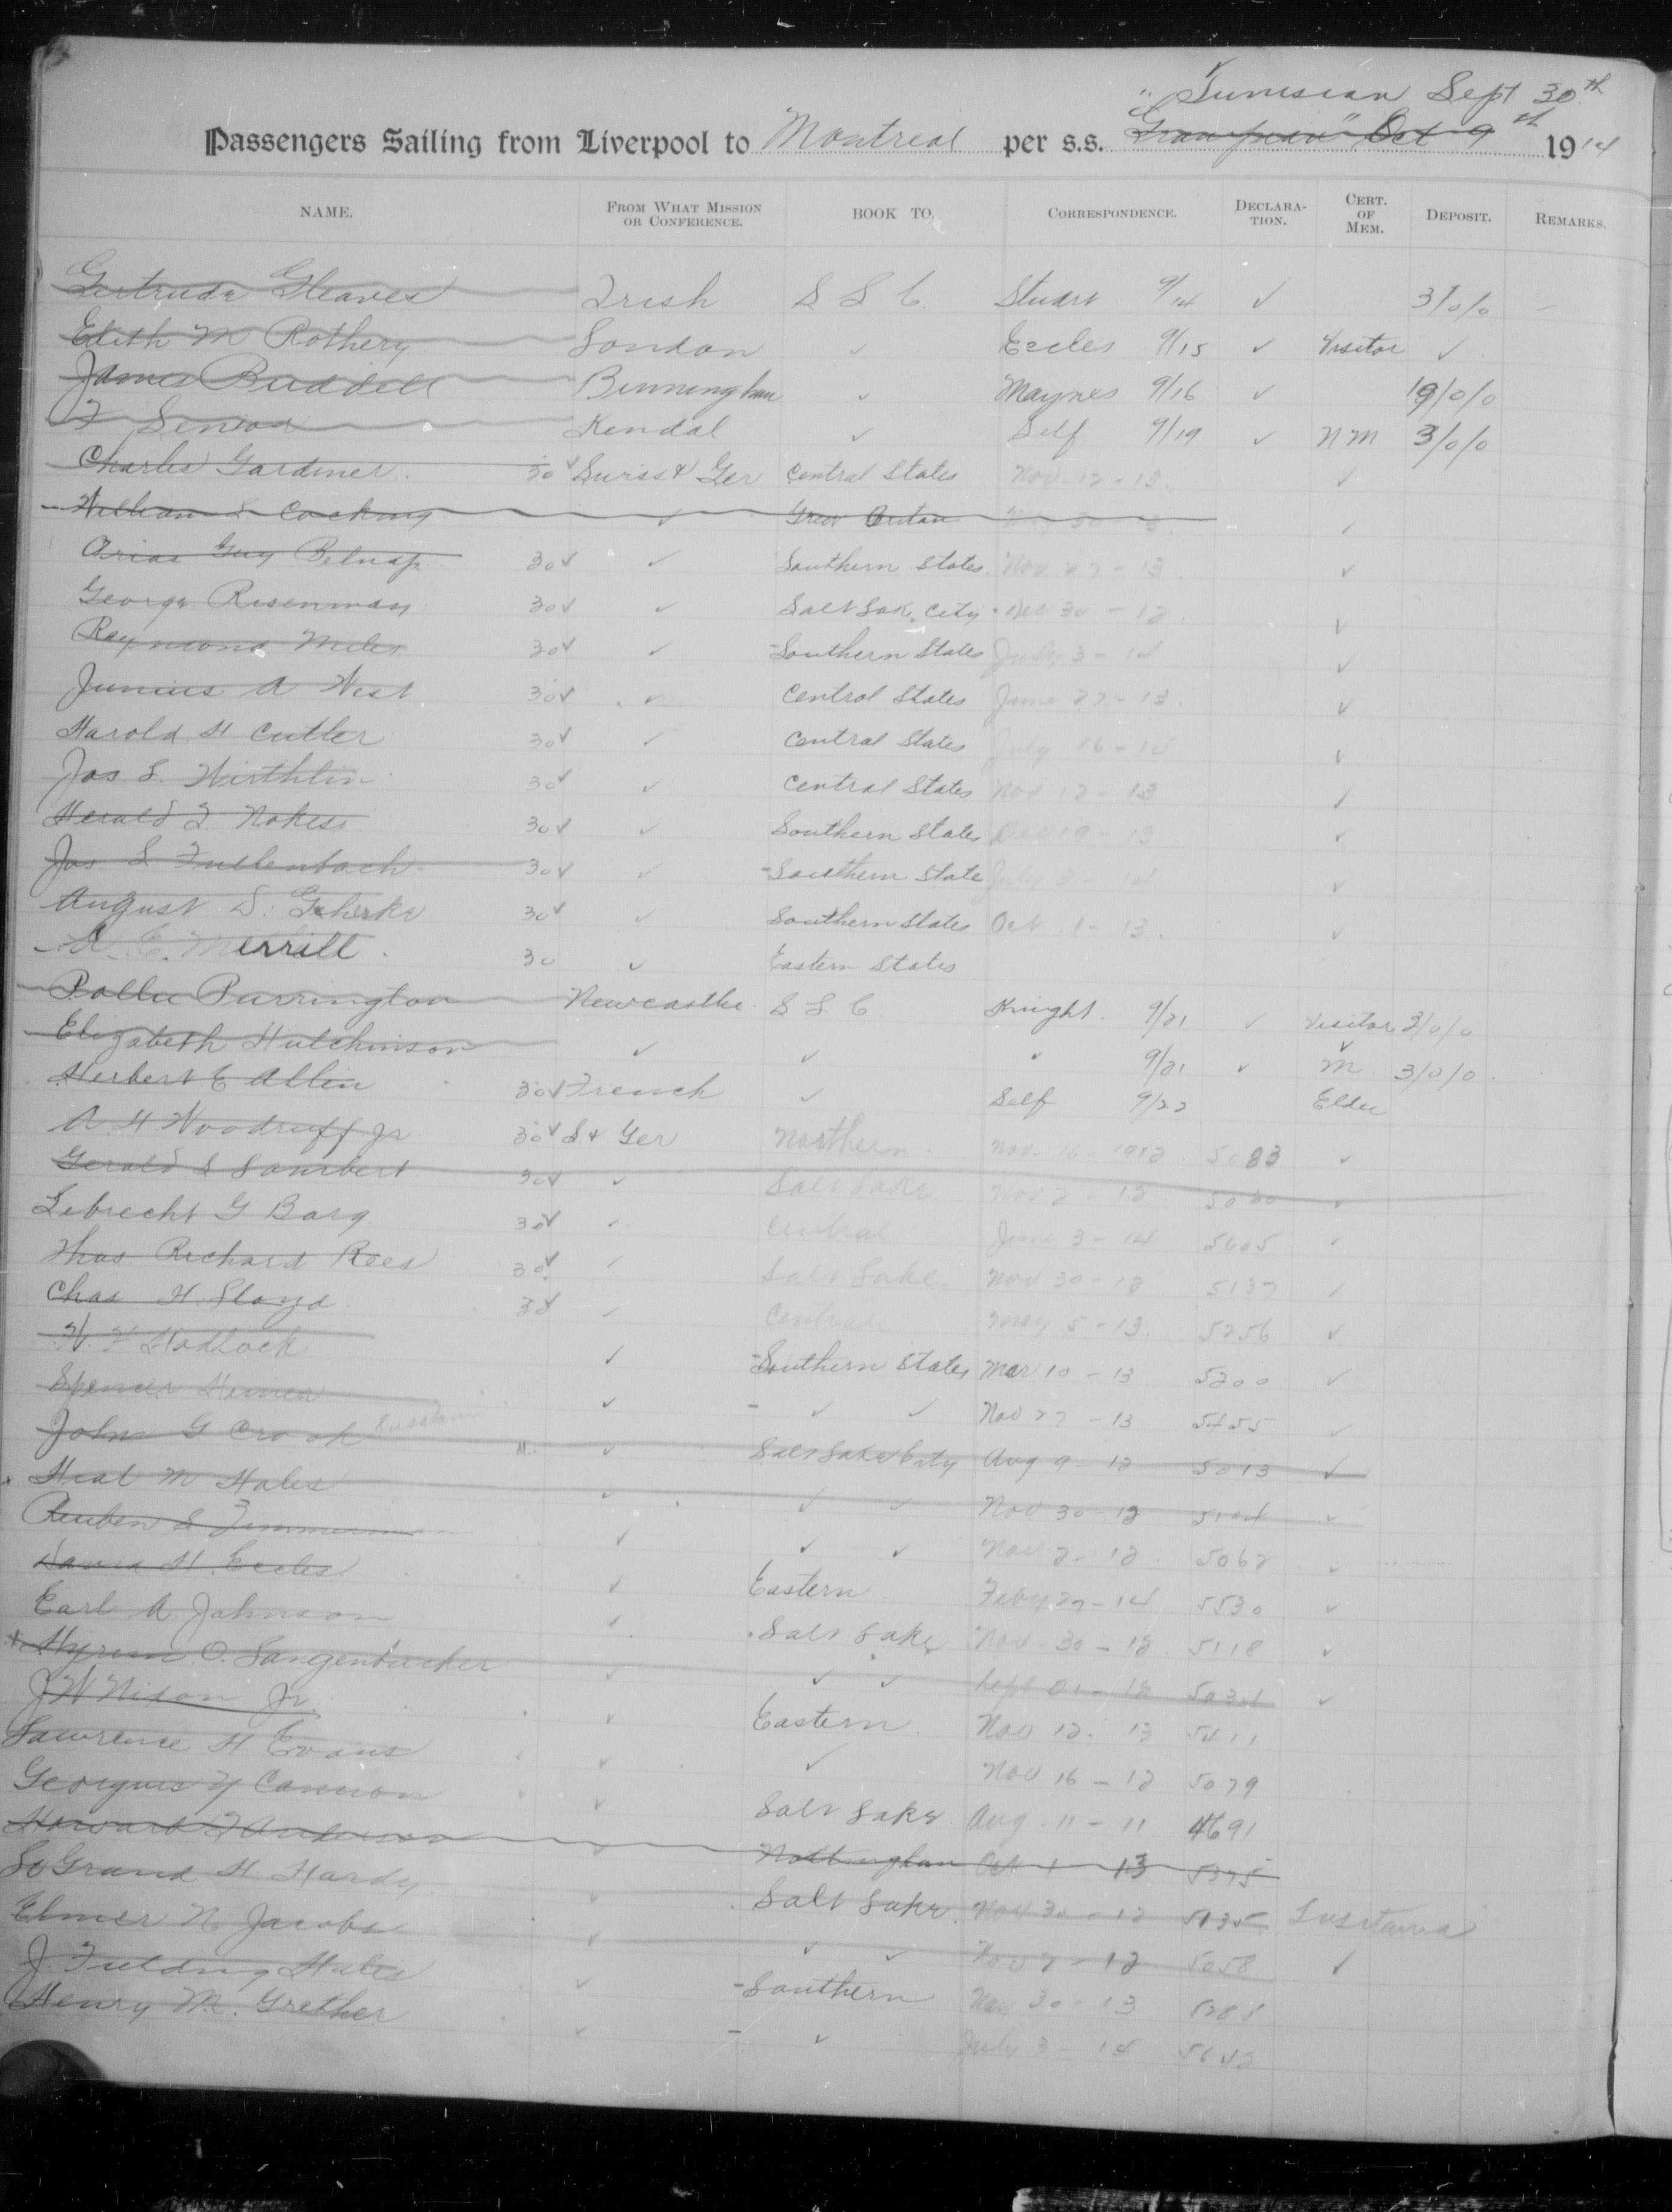 "Tunisian Sept 30th
Passengers Sailing from Liverpool to Montreal per s.s. "Grampian" Oct 9th 1914
NAME. FROM WHAT MISSION OR CONFERENCE. BOOK TO. CORRESPONDENCE. DECLARATION. CERT. OF MEM. DEPOSIT. REMARKS.
Gertrude Gleaves Irish S L C. Stuart 9/14 ✓ 3/0/0 –
Edith M Rothery London ✓ Eccles 9/15 ✓ Visitor ✓
James Buddell Birmingham ✓ Maynes 9/16 ✓ 19/0/0
F Senior Kendal ✓ Self 9/19 ✓ N M 3/0/0
Charles Gardiner. 30 ✓ Swiss & Ger Central States Nov. 12 - 13. ✓
William L Cocking ✓ Great Britain ✓
Guy Belnap 30 ✓ ✓ Southern States. Nov 27 - 13 ✓
George Risenmay 30 ✓ ✓ Salt Lake City Dec 30 - 12 ✓
Raymond Miles 30 ✓ ✓ - Southern States July 3 - 14 ✓
Junius A West 30 ✓ ✓ Central States June 27 - 13. ✓
Harold H Cutler 30 ✓ ✓ Central States July 16 - 13 ✓
Jos L. Wirthlin 30 ✓ ✓ Central States Nov 12 - 13 ✓
Herald F. Nokes 30 ✓ ✓ Southern States Dec 19 - 13 ✓
Jos L Fullenbach 30 ✓ ✓ - Southern State July 3 - 14 ✓
August D. Geherke 30 ✓ ✓ Southern States Oct 1 - 13. ✓
A. C. Merrill. 30 ✓ Eastern States
Pollie Purrington Newcastle. S L C Knight. 9/21 ✓ Visitor 3/0/0
Elizabeth Hutchinson ✓ ✓ " 9/21 ✓ M. 3/0/0.
Herbert E Allen 30 ✓ French ✓ Self 9/22 Elder
A. H. Woodruff Jr 30 ✓ S & Ger Northern. Nov. 16 - 1912 5083 ✓
Gerald L Lambert 30 ✓ ✓ Salt Lake Nov 2 - 12 5060 ✓
Lebrecht G Barg 30 ✓ ✓ Central June 3 - 14 5605 ✓
Thos Richard Rees 30 ✓ ✓ Salt Lake. Nov 30 - 12 5137 ✓
Chas H. Lloyd ✓ Central May 5 - 13. 5256 ✓
W. F Hadlock ✓ - Southern States Mar 10 - 13 5200 ✓
Spencer Heiner ✓ - ✓ ✓ Nov 27 - 13 5455 ✓
John G Crook ✓ Salt Lake City Aug 9 - 12 5013 ✓
Heal M Hales ✓ ✓ ✓ Nov 30 - 12 ✓
Reuben S Zimmerman ✓ ✓ ✓ Nov 2 - 12. 5062 ✓
David H. Eccles ✓ Eastern Feby 27 - 14 5530 ✓
Earl A. Johnson ✓ Salt Lake Nov - 30 - 12. 5118 ✓
Hyrum O. Langenbacker ✓ ✓ ✓ Sept 21 - 12 ✓
J W Nixon Jr. ✓ Eastern. Nov 12 - 13 5411
Lawrence H Evans ✓ ✓ Nov 16 - 12 5079
Georgius Y Cannon ✓ Salt Lake Aug - 11 - 11 4691
Howard F Anderson ✓ Nottingham Oct 1 - 13 5375
LeGrand H. Hardy. ✓ Salt Lake. Nov 30 - 12 5135 Lusitania
Elmer N. Jacobs ✓ ✓ ✓ Nov 2 - 12 5058 ✓
J. Fielding Hales ✓ - Southern May 30 - 13
Henry M. Grether ✓ - ✓ July 3 - 14 5642